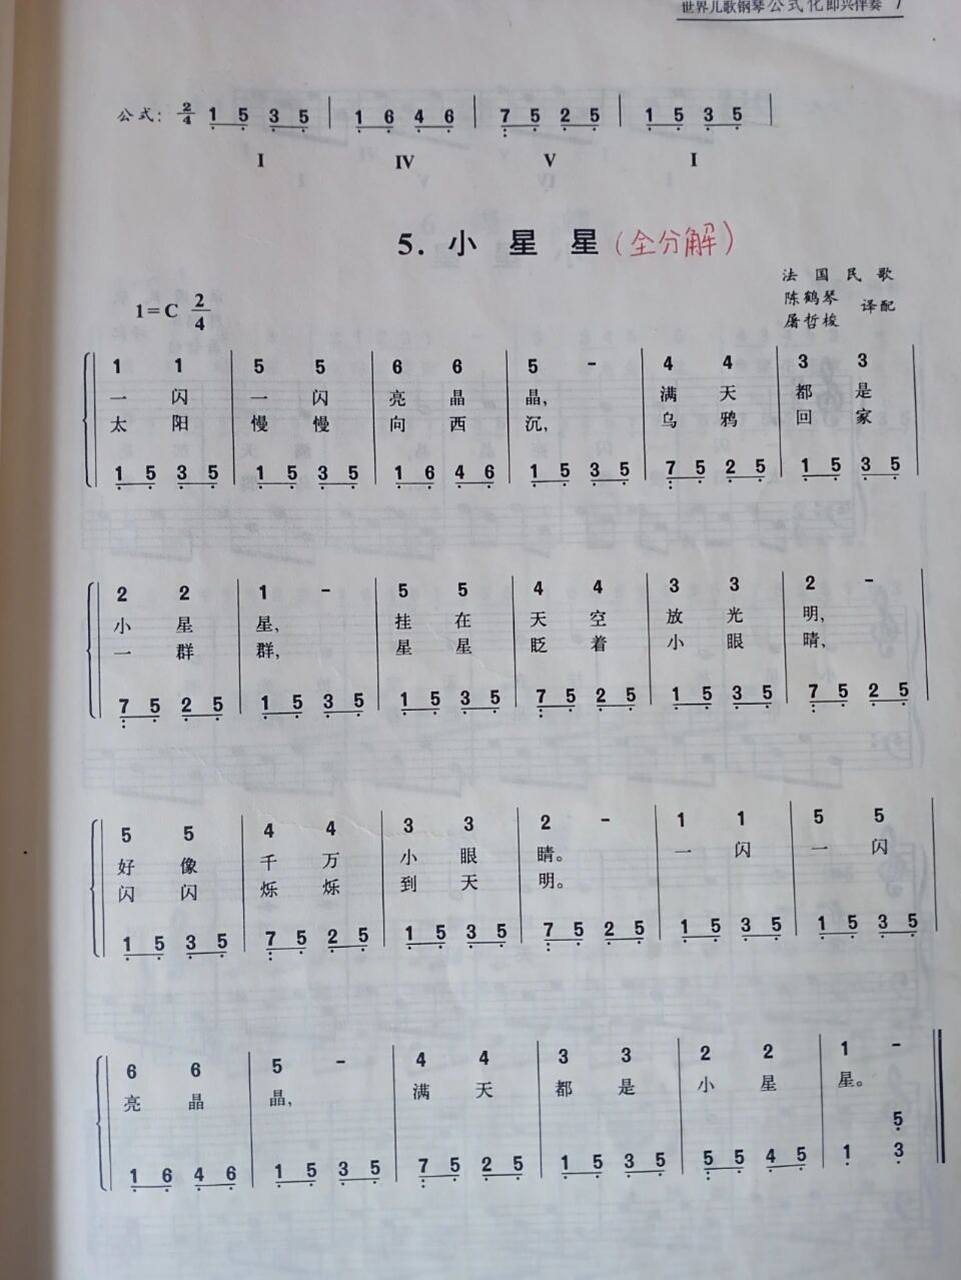 世界儿歌钢琴公式化即兴伴奏 7
公式: 2/4 1 5 3 5 | 1 6 4 6 | 7 5 2 5 | 1 5 3 5 |
I IV V I
5. 小 星 星 (全分解)
法 国 民 歌
陈鹤琴
屠哲梭 译配
1=C 2/4
1 1 | 5 5 | 6 6 | 5 - | 4 4 | 3 3
一 闪 一 闪 亮 晶 晶, 满 天 都 是
太 阳 慢 慢 向 西 沉, 乌 鸦 回 家
1 5 3 5 | 1 5 3 5 | 1 6 4 6 | 1 5 3 5 | 7 5 2 5 | 1 5 3 5
2 2 | 1 - | 5 5 | 4 4 | 3 3 | 2 -
小 星 星, 挂 在 天 空 放 光 明,
一 群 群, 星 星 眨 着 小 眼 睛,
7 5 2 5 | 1 5 3 5 | 1 5 3 5 | 7 5 2 5 | 1 5 3 5 | 7 5 2 5
5 5 | 4 4 | 3 3 | 2 - | 1 1 | 5 5
好 像 千 万 小 眼 睛。 一 闪 一 闪
闪 闪 烁 烁 到 天 明。
1 5 3 5 | 7 5 2 5 | 1 5 3 5 | 7 5 2 5 | 1 5 3 5 | 1 5 3 5
6 6 | 5 - | 4 4 | 3 3 | 2 2 | 1 -
亮 晶 晶, 满 天 都 是 小 星 星。
5
1 6 4 6 | 1 5 3 5 | 7 5 2 5 | 1 5 3 5 | 5 5 4 5 | 1 3